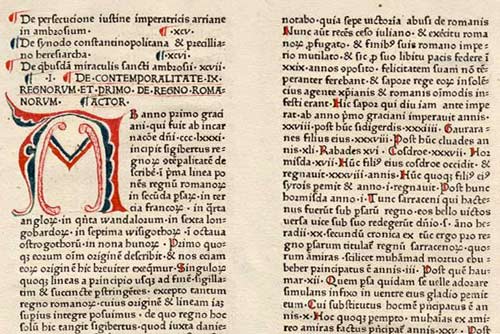 ¶ De persecucione iustine imperatricis arriane
in ambrosium. ¶ ·xv·
¶ De synodo constantinopolitana & p̄scillia/
no heresiarcha ¶ ·xvi·
¶ De q̄busdā miraculis sancti ambrosii ·xvii·
¶ ·I· ¶ DE CONTEMPORALITATE IX·
REGNORVM· ET· PRIMO· DE· REGNO· ROMA/
NORVM· ¶ ACTOR·
AB anno primo graci/
ani· qui fuit ab incar
nacōe dn̄i ·ccc·lxxxi·
incipit sigibertus re/
gnoꝝ ↄtēpalitatē de/
scribē· i· prīa linea po
nēs regnū romanoꝝ·
in secūda psaꝝ· in ter
cia francoꝝ· in q̄rta
angloꝝ· in q̄nta wandalorum· in sexta lon/
gobardoꝝ· in septima wisgothoꝝ· i· octaua
ostrogothorū· in nona hunoꝝ· Primo quo/
qꝫ eorum oīm originē describit· & nos eciam
eoꝝ originē hic breuiter exeq̄mur· Singuloꝝ
quoqꝫ lineas a principio usqꝫ ad finē· sigilla/
tim & succincte p̄stringētes· excepto tantum
regno romanoꝝ· cuius originē & lineam iā
supius integre posuimus· de quo regno hic
sol hic tangit sigibertus· quod iuxta danie/
notabo· quia sepe uictoria abusi de romanis
Nunc aūt reces ceso iuliano· & exercitu roma
noꝝ ꝓfugato· & finibꝰ suis romano impe/
rio mutilato· & sic p̱ suo libitu pacis federe ī
xxix· annos oposito· felicitatē suam nō tē/
peranter ferebant· & sapore rege eoꝝ insolē/
cius agente· xp̄ianis & romanis oīmodis in/
festi erant· Hic sapor qui diu iam ante impe
rat· ab anno p̄mo graciani imperauit annis
xxviii· post hūc sidigerdis ·xxxiii· Gaurara/
nes filius eius ·xxxviii· Post hūc cluades an
nis ·xli· Rabades xvi· Cosdroe ·xxxvi· Hor
misda ·xvii· Huic filiꝰ eius cosdroe occidit· &
regnauit ·xxxviii· annis· Huic quoqꝫ filiꝰ ei/
syrois pemit & anno ·i· regnauit· Post hunc
hormisda anno ·i· Tunc sarraceni qui hacte/
nus fuerūt sub psarū regno· eos bello uictos
uersa uice sub suo redegerūt dūio· ab anō he
radii ·xx· secundū cronica ex tūc ergo pro re/
gno psarum titulat̄ regnū sarracenoꝝ· quoꝝ
primum amiras scilicet muhāmad mortuo ebu/
beher principatus ē annis ·iii· Post quē hau/
mar ·xii· Quem psa quidam se uelle adorare
simulans infixo in uentre eius gladio pemit
eum· Cui substitutus hocmen principat̄ ē an
nis ·x· Huic quoqꝫ perempto· muhaias ex ami